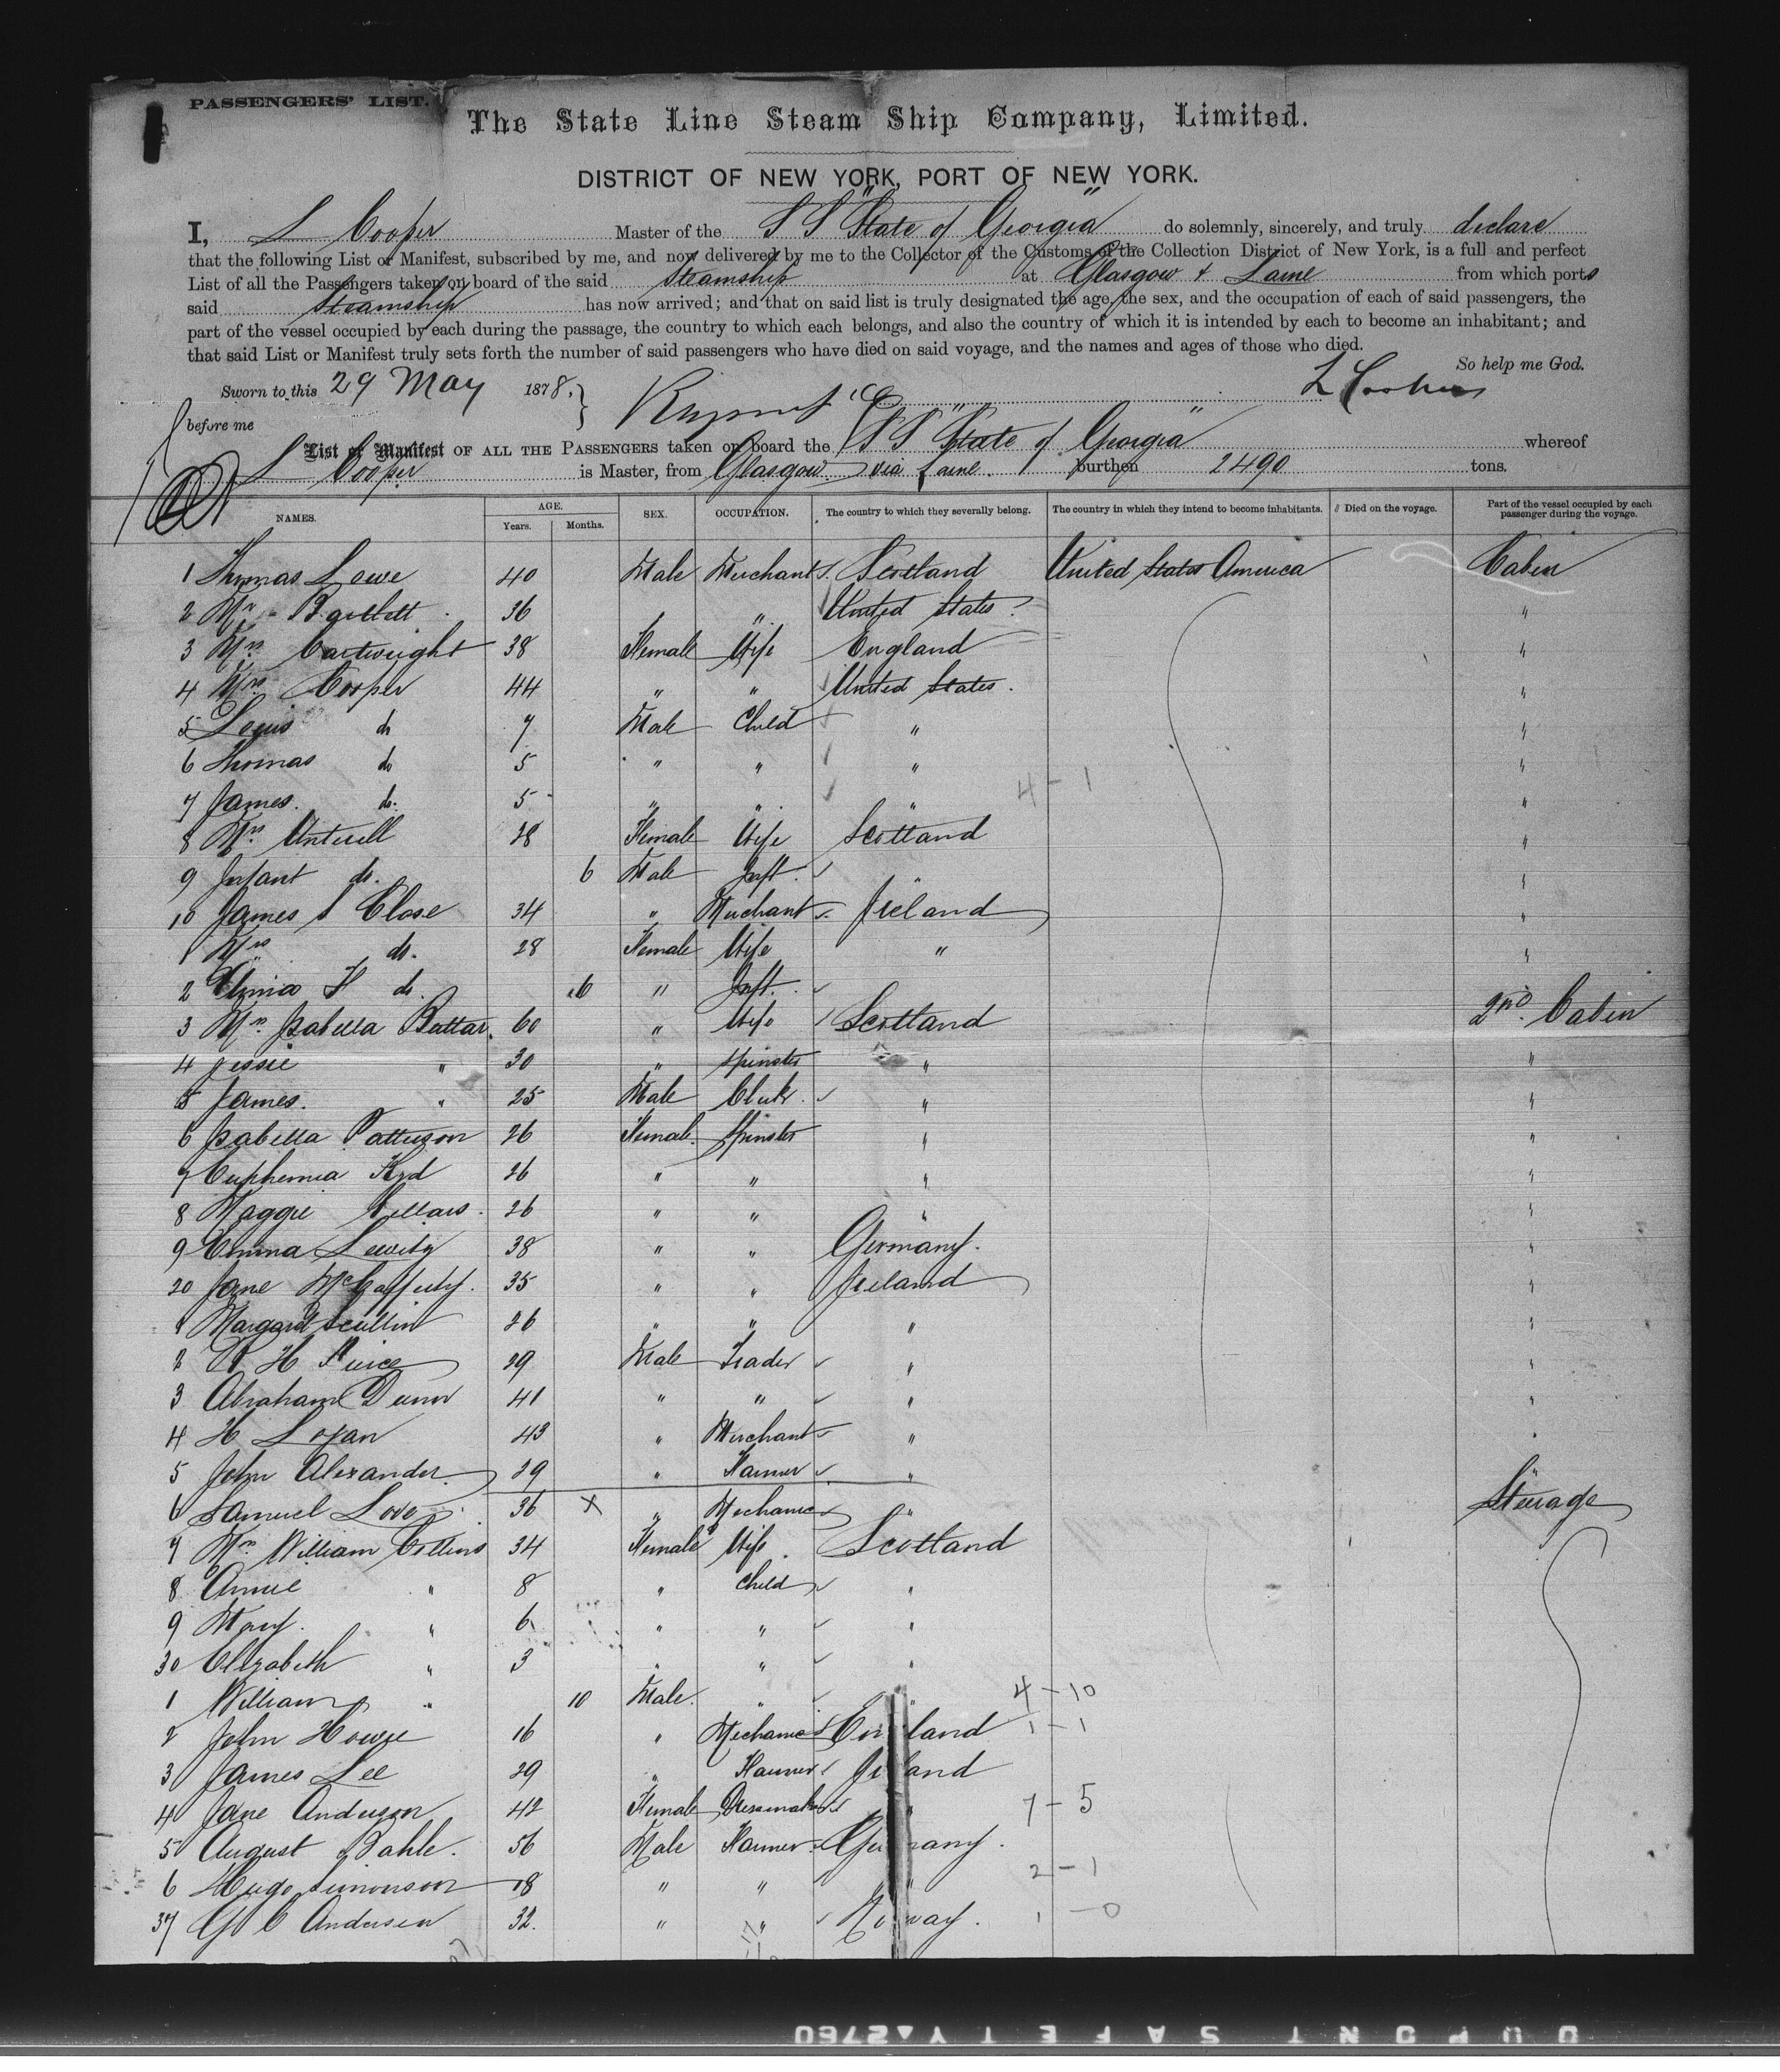 PASSENGERS' LIST.
The State Line Steam Ship Company, Limited.
DISTRICT OF NEW YORK, PORT OF NEW YORK.
I, L Cooper Master of the S S "State of Georgia" do solemnly, sincerely, and truly declare
that the following List or Manifest, subscribed by me, and now delivered by me to the Collector of the Customs of the Collection District of New York, is a full and perfect
List of all the Passengers taken on board of the said Steamship at Glasgow & Larne from which ports
said Steamship has now arrived; and that on said list is truly designated the age, the sex, and the occupation of each of said passengers, the
part of the vessel occupied by each during the passage, the country to which each belongs, and also the country of which it is intended by each to become an inhabitant; and
that said List or Manifest truly sets forth the number of said passengers who have died on said voyage, and the names and ages of those who died.
So help me God.
Sworn to this 29 May 1878. L Cooper
before me
List or Manifest OF ALL THE PASSENGERS taken on board the S S "State of Georgia" whereof
L Cooper is Master, from Glasgow via Larne burthen 2490 tons.
NAMES. AGE. Years. Months. SEX. OCCUPATION. The country to which they severally belong. The country in which they intend to become inhabitants. Died on the voyage. Part of the vessel occupied by each passenger during the voyage.
1 Thomas Lowe 40 Male Merchant Scotland United States America Cabin
2 Mr Bartlett 36 " " United States "
3 Mrs Cartwright 38 Female Wife England "
4 Mrs Cooper 44 " " United States. "
5 Louis do 7 Male Child " "
6 Thomas do 5 " " " "
7 James. do. 5 " " " 4-1 "
8 Mrs 28 Female Wife Scotland "
9 Infant do. 6 Male Inft. " "
10 James S Close 34 " Merchant Ireland "
1 Mrs do. 28 Female Wife " "
2 H do. 6 " Inft.
3 Mrs Isabella 60 " Wife Scotland 2nd Cabin
4 Jessie " 30 " Spinster " "
5 James. " 25 Male Clerk. " "
6 Isabella Patterson 26 Female Spinster " "
7 Euphemia Kyd 26 " " " "
8 Maggie 26 " " " "
9 Emma 38 " " Germany. "
20 Jane McCafferty. 35 " " Ireland "
1 Margaret Scullin 26 " " " "
2 H 29 Male Trader " "
3 Abraham Dunn 41 " " " "
4 H Logan 43 " Merchant " "
5 John Alexander 29 " Farmer " "
6 Samuel Love 36 X " Mechanic " Steerage
7 Mrs William Collins 34 Female Wife Scotland
8 Annie " 8 " Child "
9 Mary. " 6 " " "
30 Elizabeth " 3 " " "
1 William " 10 Male. " " 4-10
2 John Howie 16 " Mechanic England 1-1
3 James Lee 29 " Farmer Ireland
4 Jane Anderson 42 Female Dressmaker " 7-5
5 August Bahle. 56 Male Farmer Germany.
6 Hugo Simonson 18 " " " 2-1
37 G C Andersen 32. " " Norway. 1-0
DUPONT SAFETY 2760